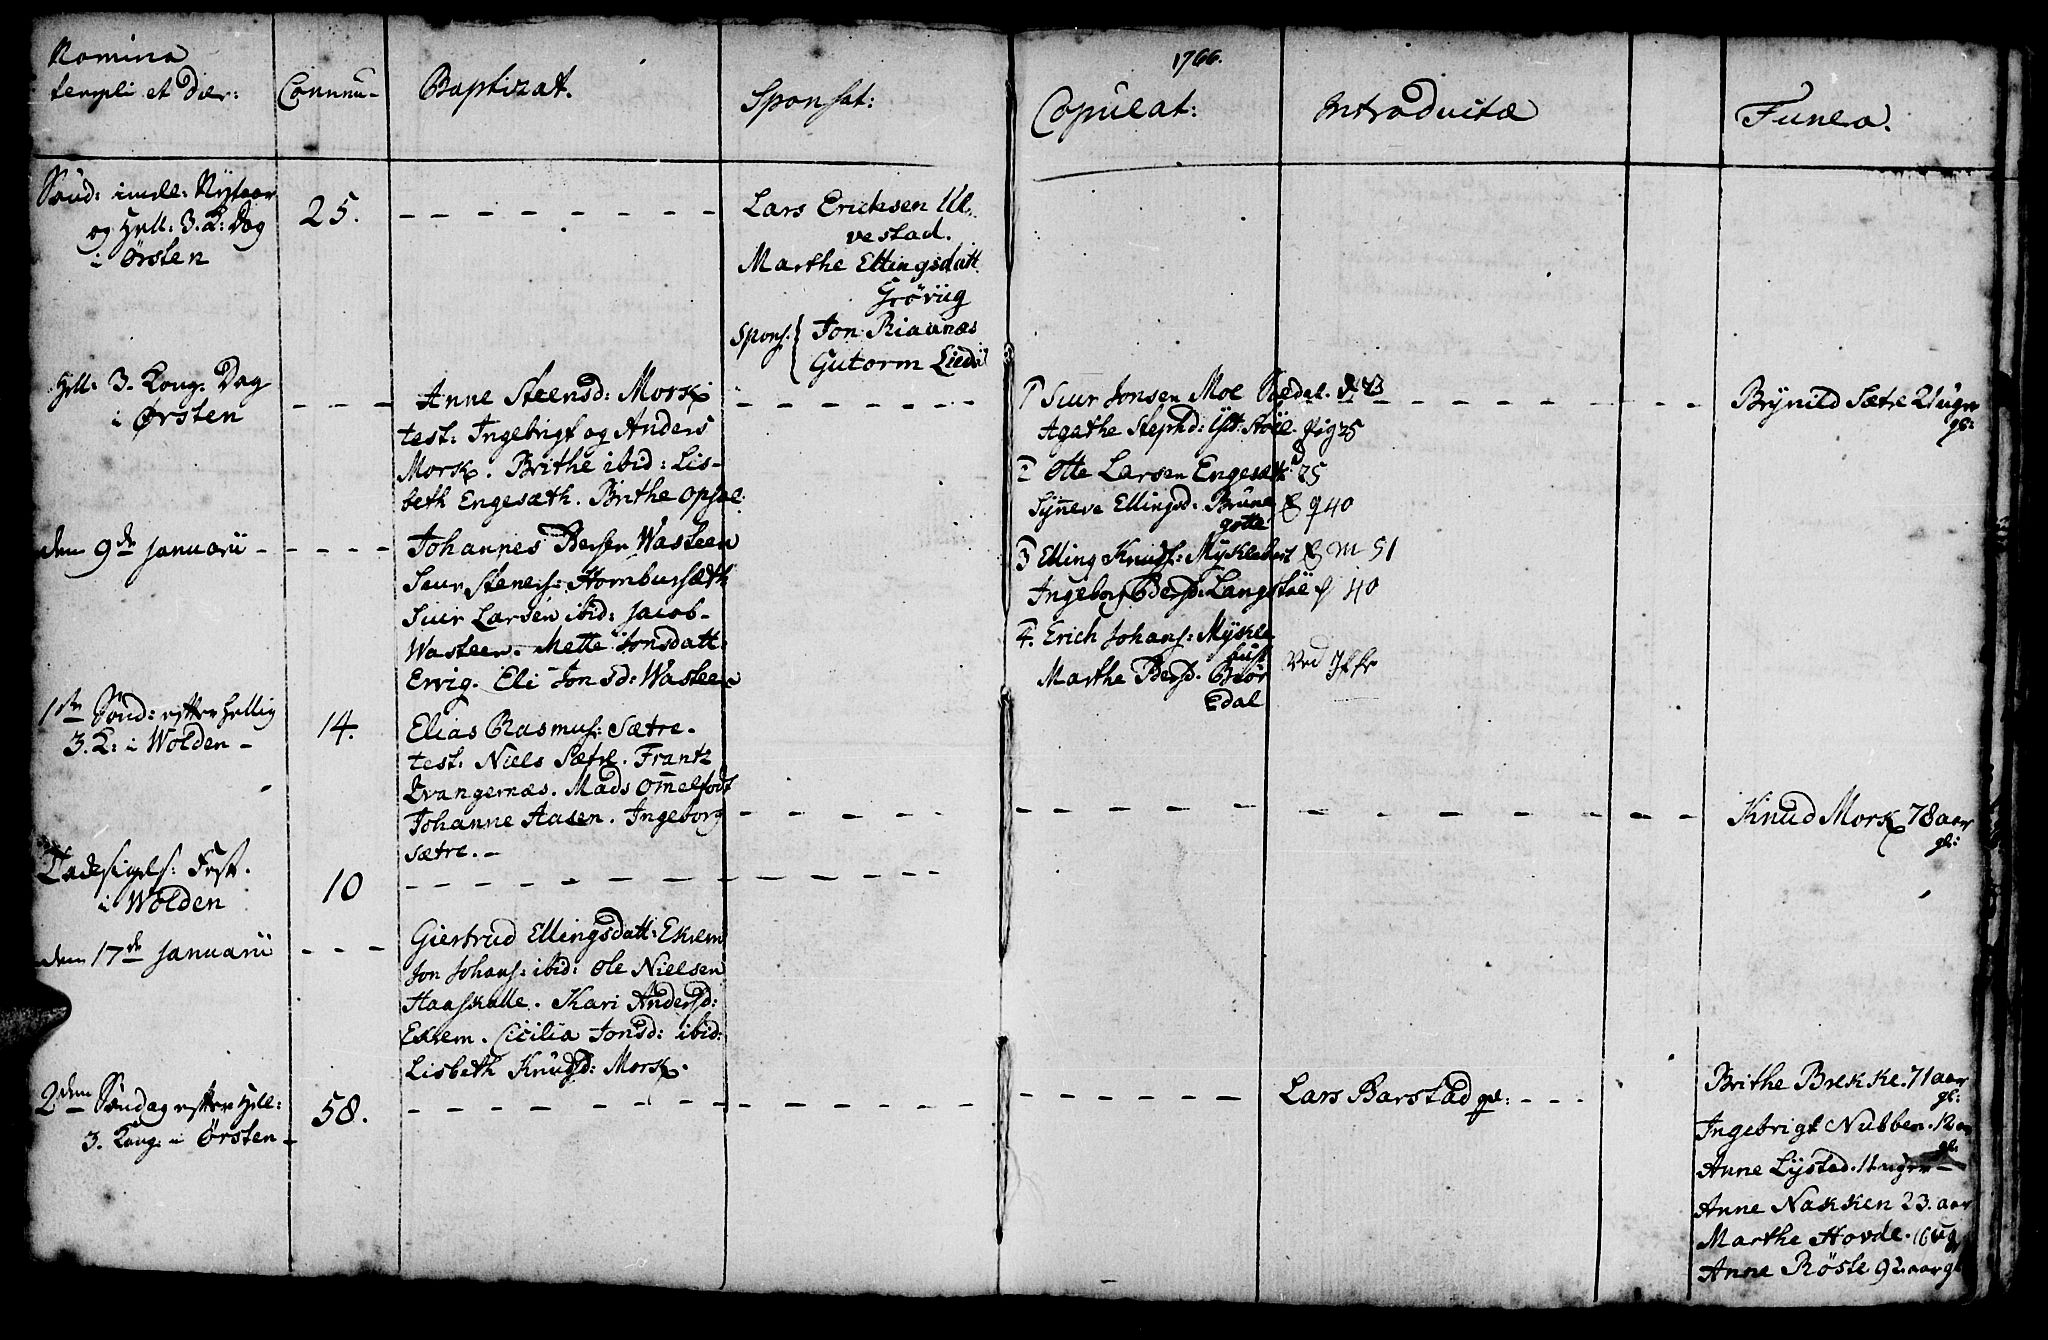 1766.
Nomina
templi et Dier:
Commu-
Baptizat.
Sponsat:
Copulat:
Introductæ
Funera.
Sønd: imel: Nytaar
og Hell: 3. K: Dag
i Ørsten
25.
Lars Ericksen Ul-
vestad.
Marthe Ellingsdatt
Grøviig
Spons: Jon Riaanæs
Gutorm Lied
Hell: 3. Kong. Dag
i Ørsten
Anne Steensd: Mork
test: Ingebrigt og Anders
Mork. Brithe ibid: Lis-
beth Engesæth. Brithe Opsal.
1 Siur Jonsen Moe
Agathe Stephd:
2 Otte Larsen Engesæt 25
Synneve Ellingsd: Brune
gotte 40
3 Elling Knuds: Myklebust 51
Ingeborg Pedersd: Langstøe 40
4. Erich Johans: Mykle
bust
Marthe Pedersd. Biør
Edal
Brynild Sætre 21 uger
gl:
den 9de Januarii
Johannes Persen Wasteen
Siur Steners: Hornbursæth
Siur Larsen ibid: Jacob
Wasteen. Mette Jonsdatt:
Ervig. Eli Jonsd: Wasteen
1ste Sønd: efter Hellig
3. K: i Wolden
14.
Elias Rasmus: Sætre.
test: Niels Sætre. Frantz
Mads
Johanne Aasen. Ingeborg
Sætre.
Knud Mork 78 aar
gl:
Fest.
i Wolden
10
den 17de Januarii
Giertrud Ellingsdatt: Ekrem
Jon Johans: ibid: Ole Nielsen
Haaskolle. Kari Andersd:
Ekrem. Cicilia Jonsd: ibid:
Lisbeth Knudsd: Mork.
2den Søndag efter Hell:
3. Kong: i Ørsten
58.
Lars Barstad
Brithe Brekke. 71 aar
gl:
Ingebrigt Nubben. 12 aar
gl:
Anne Lystad. 11 uger
Anne Nakken 23. aar
Marthe Hovde. 16 ug
Anne Røste 92. aar gl